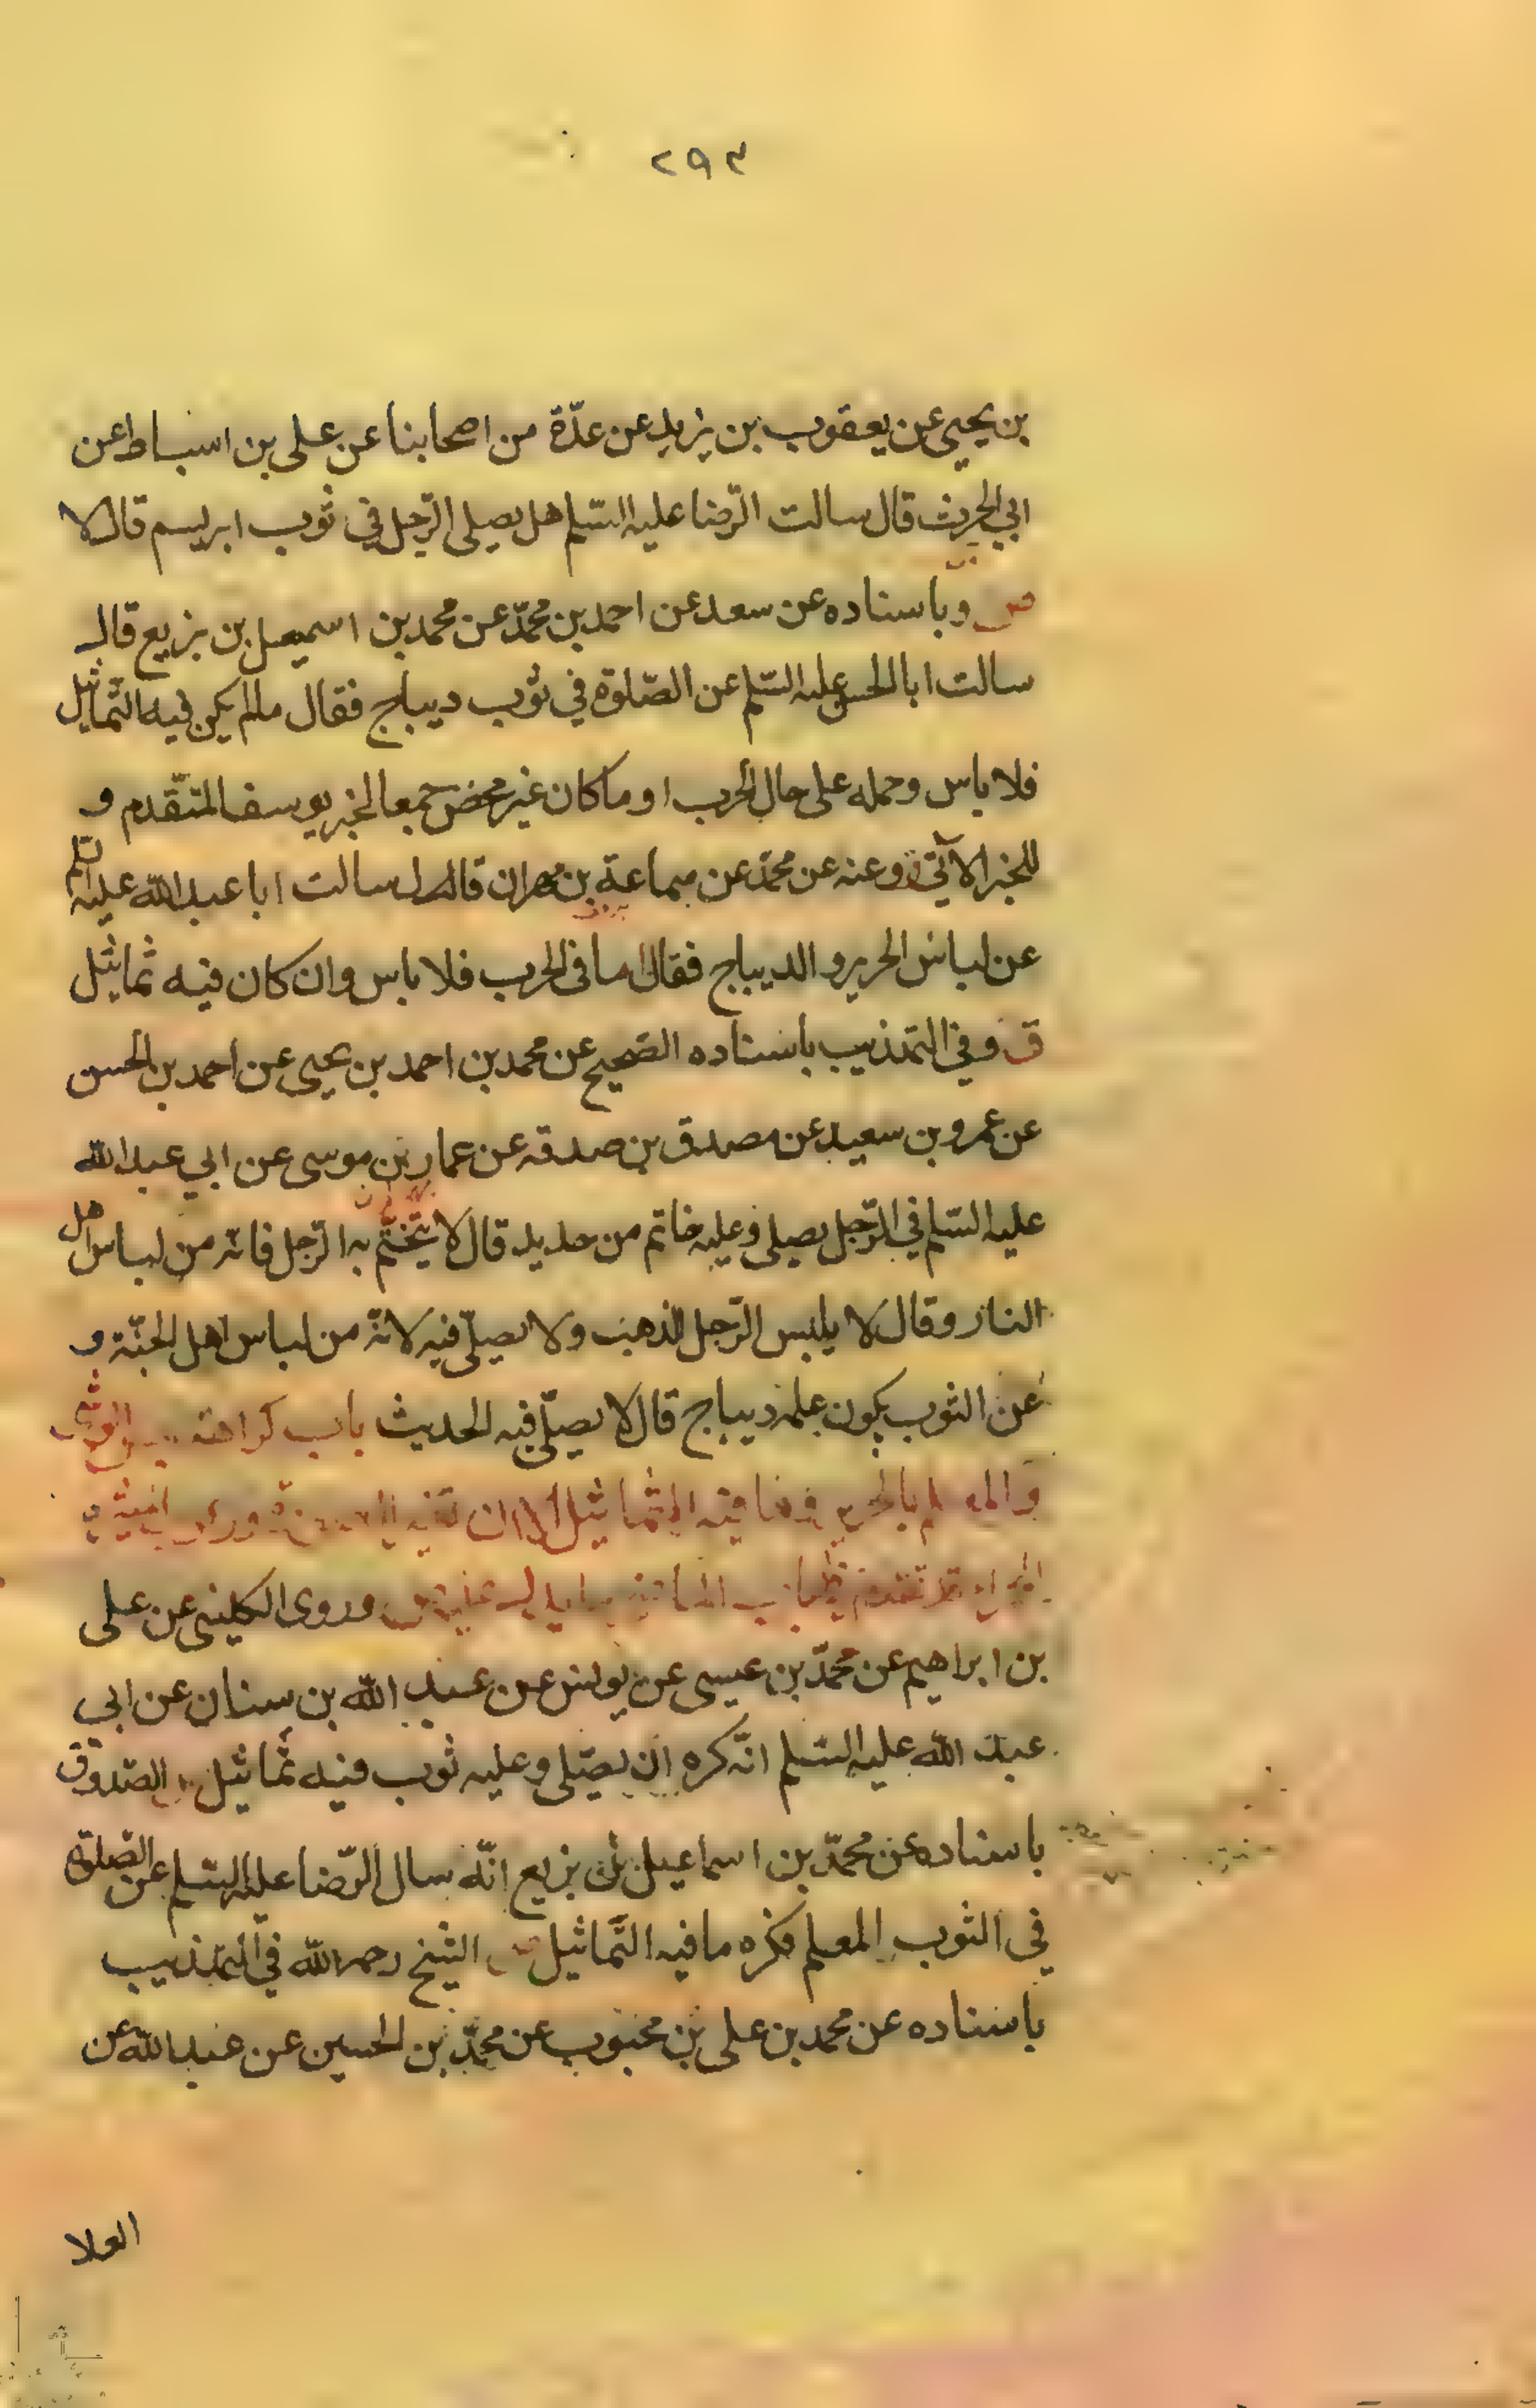 ٢٩٣
بن يحيى عن يعقوب بن يزيد عن عدّة من اصحابنا عن على بن اسباط عن
ابي الحرث قال سالت الرّضا عليه السّلم هل يصلى الرّجل في ثوب ابريسم قال لا
ص وباسناده عن سعد عن احمد بن محمّد عن محمد بن اسمعيل بن بزيع قال
سالت ابا الحسن عليه السّلم عن الصّلوة في ثوب ديباج فقال مالم يكن فيه التّماثيل
فلا باس وحمله على حال الحرب او ما كان غير محض جمعا لخبر يوسف المتقّدم و
للخبر الآتي وعنه عن محمّد عن سماعة بن مهران قال سالت ابا عبد الله عليه السّلم
عن لباس الحرير و الديباج فقال اما في الحرب فلا باس وان كان فيه تماثيل
ق و في التهذيب باسناده الصّحيح عن محمد بن احمد بن يحيى عن احمد بن الحسن
عن عمرو بن سعيد عن مصدق بن صدقه عن عمار بن موسى عن ابي عبد الله
عليه السّلم في الرّجل يصلى وعليه خاتم من حديد قال لا يتختّم به الرّجل فانّه من لباس اهل
النار وقال لا يلبس الرّجل الذهب ولا يصلّى فيه لانّه من لباس اهل الجنّة و
عن الثوب يكون علمه ديباج قال لا يصلّى فيه الحديث باب كراهة لبس الوشى
والمعلم بالحرير وما فيه التماثيل
وروى الكلينى عن على
بن ابراهيم عن محمّد بن عيسى عن يونس عن عبد الله بن سنان عن ابي
عبد الله عليه السّلم انّه كره ان يصلّى وعليه ثوب فيه تماثيل الصّدوق
باسناده عن محمّد بن اسماعيل بن بزيع انّه سال الرّضا عليه السّلم عن الصّلوة
في الثوب المعلم فكره ما فيه التّماثيل الشيخ رحمه الله في التهذيب
باسناده عن محمد بن على بن محبوب عن محمّد بن الحسين عن عبد الله عن
العلا